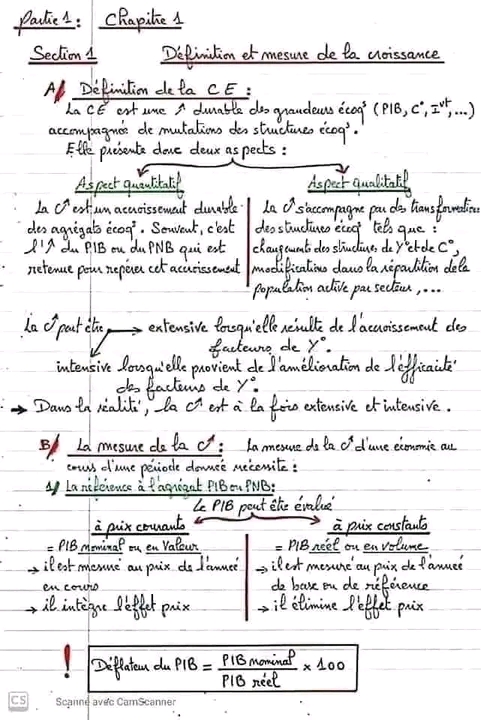 Partie 1 : Chapitre 1
Section 1 Définition et mesure de la croissance
A/ Définition de la C E :
La CE est une ↗ durable des grandeurs écoq^s (PIB, C°, I^vt, ...)
accompagnée de mutations des structures écoq^s.
Elle présente donc deux aspects :
Aspect quantitatif
La C↗ est un accroissement durable
des agrégats écoq^s. Souvent, c'est
l'↗ du PIB ou du PNB qui est
retenue pour repérer cet accroissement
Aspect qualitatif
La C↗ s'accompagne par des transformations
des structures écoq^s tels que :
changements des structures de Y° et de C°,
modifications dans la répartition de la
population active par secteur, ...
La C↗ peut être → extensive lorsqu'elle résulte de l'accroissement des
facteurs de Y°.
intensive lorsqu'elle provient de l'amélioration de l'éfficaité
des facteurs de Y°.
→ Dans la réalité, la C↗ est à la fois extensive et intensive.
B/ La mesure de la C↗ : La mesure de la C↗ d'une économie au
cours d'une période donnée nécessite :
1/ La référence à l'agrégat PIB ou PNB :
Le PIB peut être évalué
à prix courants
= PIB nominal ou en Valeur
→ il est mesuré au prix de l'année
en cours
→ il intègre l'effet prix
à prix constants
= PIB réel ou en volume
→ il est mesuré au prix de l'année
de base ou de référence
→ il élimine l'effet prix
! Déflateur du PIB = PIB nominal / PIB réel × 100
CS Scanné avec CamScanner